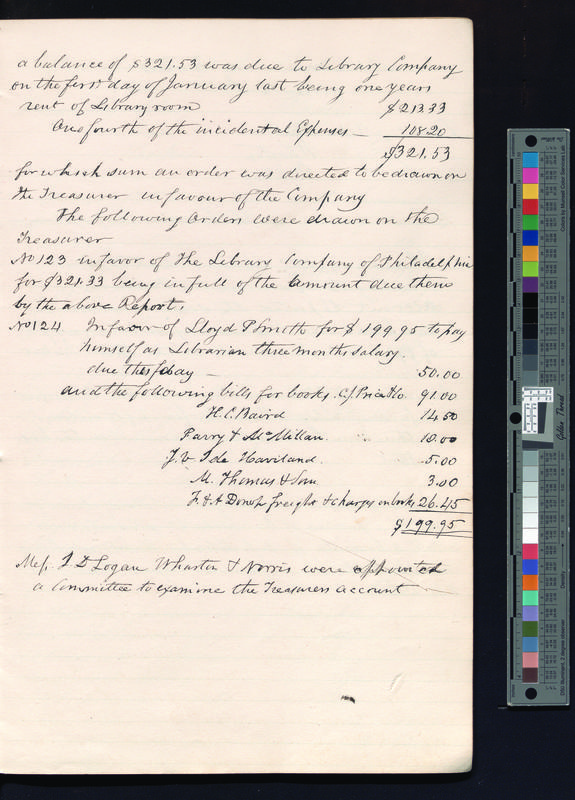 a balance of $321.53 was due to Library Company
on the first day of January last being one years
rent of Library room $213.33
One fourth of the incidental Expenses — 108.20
$321.53
for which sum an order was directed to be drawn on
the Treasurer in favour of the Company
The following Orders were drawn on the
Treasurer
No 123 in favor of The Library Company of Philadelphia
for $321.33 being in full of the amount due them
by the above Report.
No 124 In favor of Lloyd P Smith for $199.95 to pay
himself as Librarian three months salary.
due this day — 50.00
and the following bills for books. C J Price & Co. 91.00
H. C. Baird 14.50
Parry & McMillan 10.00
J. & I de Haviland. 5.00
M. Thomas & Son 3.00
F & A Donop freight & charges on books 26.45
$199.95
Mess. J D Logan Wharton & Norris were appointed
a Committee to examine the Treasurers account